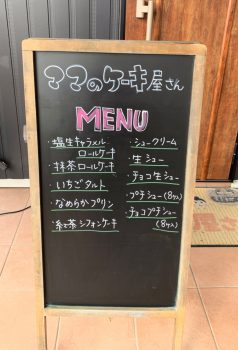 ママのケーキ屋さん
MENU
・塩生キャラメル
ロールケーキ
・抹茶ロールケーキ
・いちごタルト
・なめらかプリン
・紅茶シフォンケーキ
・シュークリーム
・生シュー
・チョコ生シュー
・プチシュー(8ヶ入)
・チョコプチシュー
(8ヶ入)